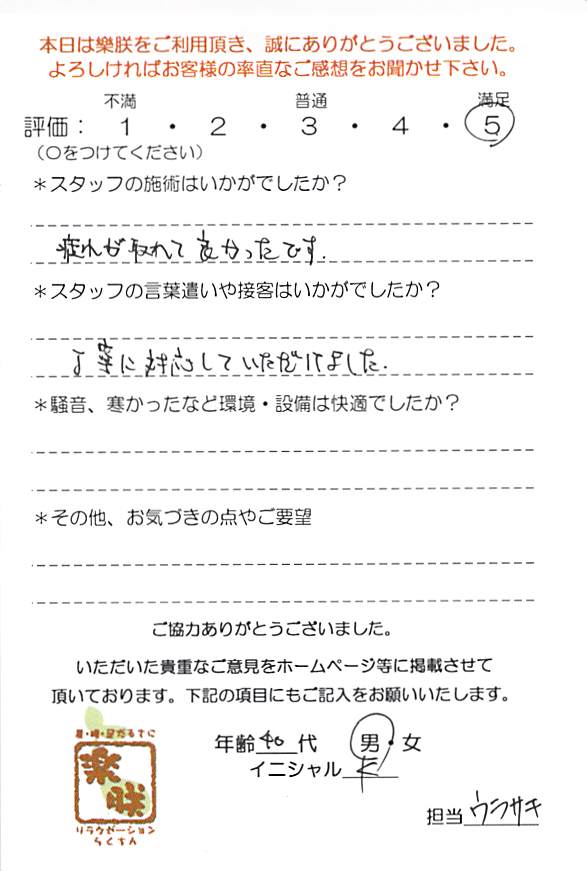 本日は樂朕をご利用頂き、誠にありがとうございました。
よろしければお客様の率直なご感想をお聞かせ下さい。
不満 普通 満足
評価： 1 ・ 2 ・ 3 ・ 4 ・ 5
（〇をつけてください）
＊スタッフの施術はいかがでしたか？
疲れが取れて良かったです.
＊スタッフの言葉遣いや接客はいかがでしたか？
丁寧に対応していただけました.
＊騒音、寒かったなど環境・設備は快適でしたか？
＊その他、お気づきの点やご要望
ご協力ありがとうございました。
いただいた貴重なご意見をホームページ等に掲載させて
頂いております。下記の項目にもご記入をお願いいたします。
年齢 40 代 男・女
イニシャル K
担当 ウラサキ
樂朕
リラクゼーション
らくちん